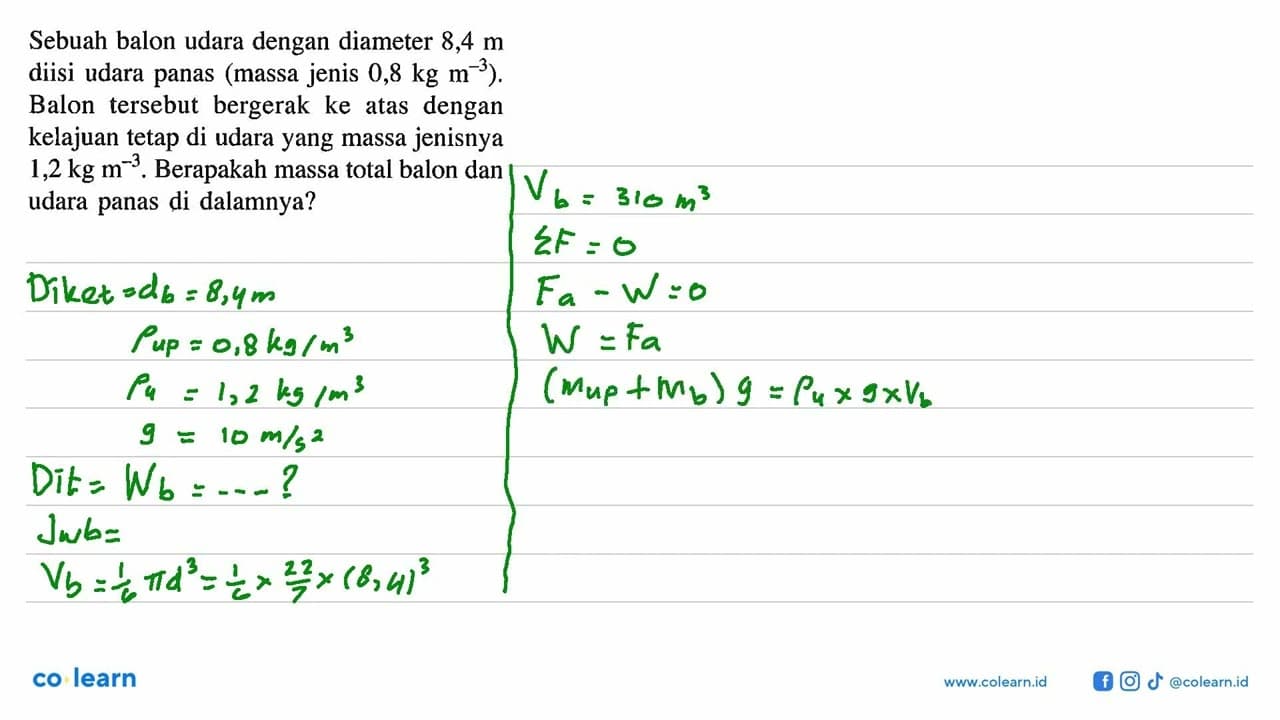 Sebuah balon udara dengan diameter 8,4 m
diisi udara panas (massa jenis 0,8 kg m⁻³).
Balon tersebut bergerak ke atas dengan
kelajuan tetap di udara yang massa jenisnya
1,2 kg m⁻³. Berapakah massa total balon dan
udara panas di dalamnya?
Diket = d_b = 8,4 m
ρ_up = 0,8 kg/m³
ρ_u = 1,2 kg/m³
g = 10 m/s²
Dit = W_b = ---- ?
Jwb =
V_b = 1/6 πd³ = 1/6 × 22/7 × (8,4)³
V_b = 310 m³
ΣF = 0
Fa - W = 0
W = Fa
(m_up + m_b) g = ρ_u × g × V_b
co learn
www.colearn.id
@colearn.id